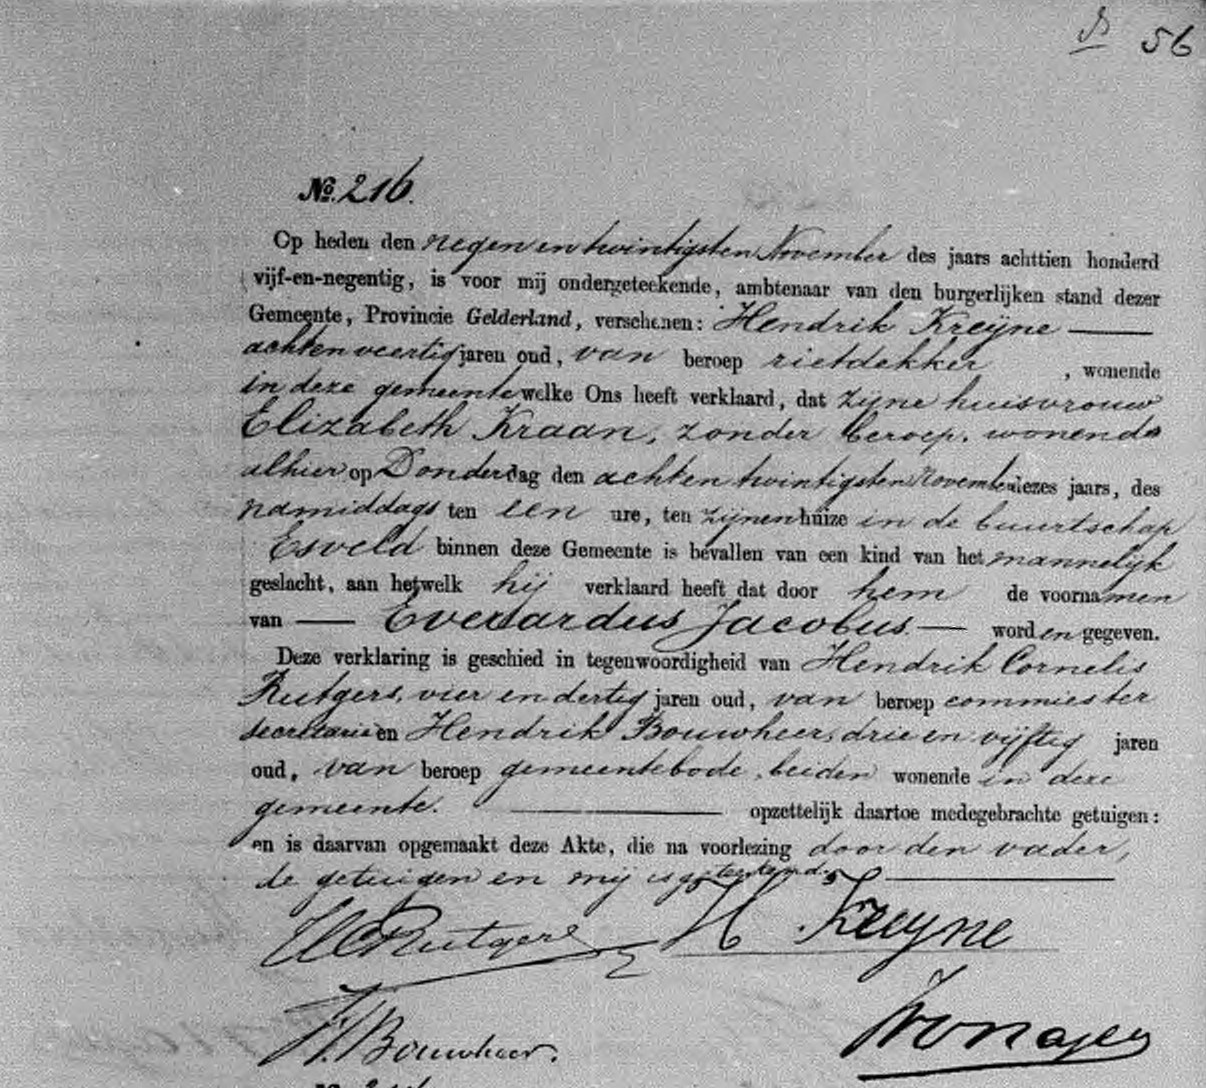 56
No. 216.
Op heden den negen en twintigsten November des jaars achttien honderd
vijf-en-negentig, is voor mij ondergeteekende, ambtenaar van den burgerlijken stand dezer
Gemeente, Provincie Gelderland, verschenen: Hendrik Kreijne
acht en veertig jaren oud, van beroep rietdekker, wonende
in deze gemeente welke Ons heeft verklaard, dat zijne huisvrouw
Elizabeth Kraan, zonder beroep, wonende
alhier op Donderdag den acht en twintigsten November dezes jaars, des
namiddags ten een ure, ten zijnen huize in de buurtschap
Esveld binnen deze Gemeente is bevallen van een kind van het mannelijk
geslacht, aan hetwelk hij verklaard heeft dat door hem de voornamen
van — Everardus Jacobus — worden gegeven.
Deze verklaring is geschied in tegenwoordigheid van Hendrik Cornelis
Rutgers, vier en dertig jaren oud, van beroep commies ter
secretarie en Hendrik Bouwheer, drie en vijftig jaren
oud, van beroep gemeentebode, beiden wonende in deze
gemeente. opzettelijk daartoe medegebrachte getuigen:
en is daarvan opgemaakt deze Akte, die na voorlezing door den vader,
de getuigen en mij is geteekend.
HCRutgers H Kreijne
H. Bouwheer.